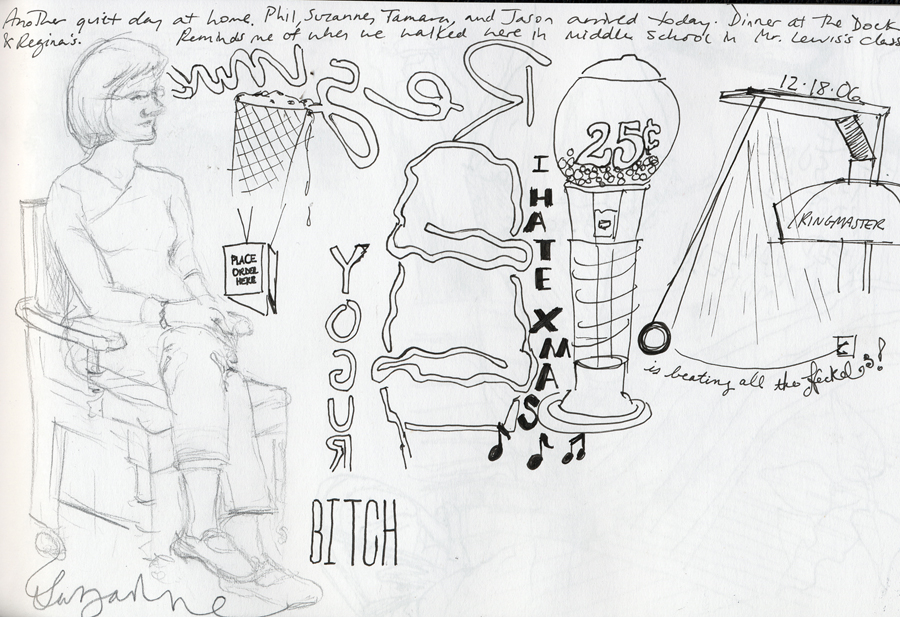 Another quiet day at home. Phil, Suzanne, Tamara, and Jason arrived today. Dinner at The Dock
& Regina's. Reminds me of when we walked here in middle school in Mr. Lewis's class
12·18·06
25¢
I HATE XMAS
RINGMASTER
PLACE
ORDER
HERE
YOGUR
is beating all the
BITCH
Suzanne